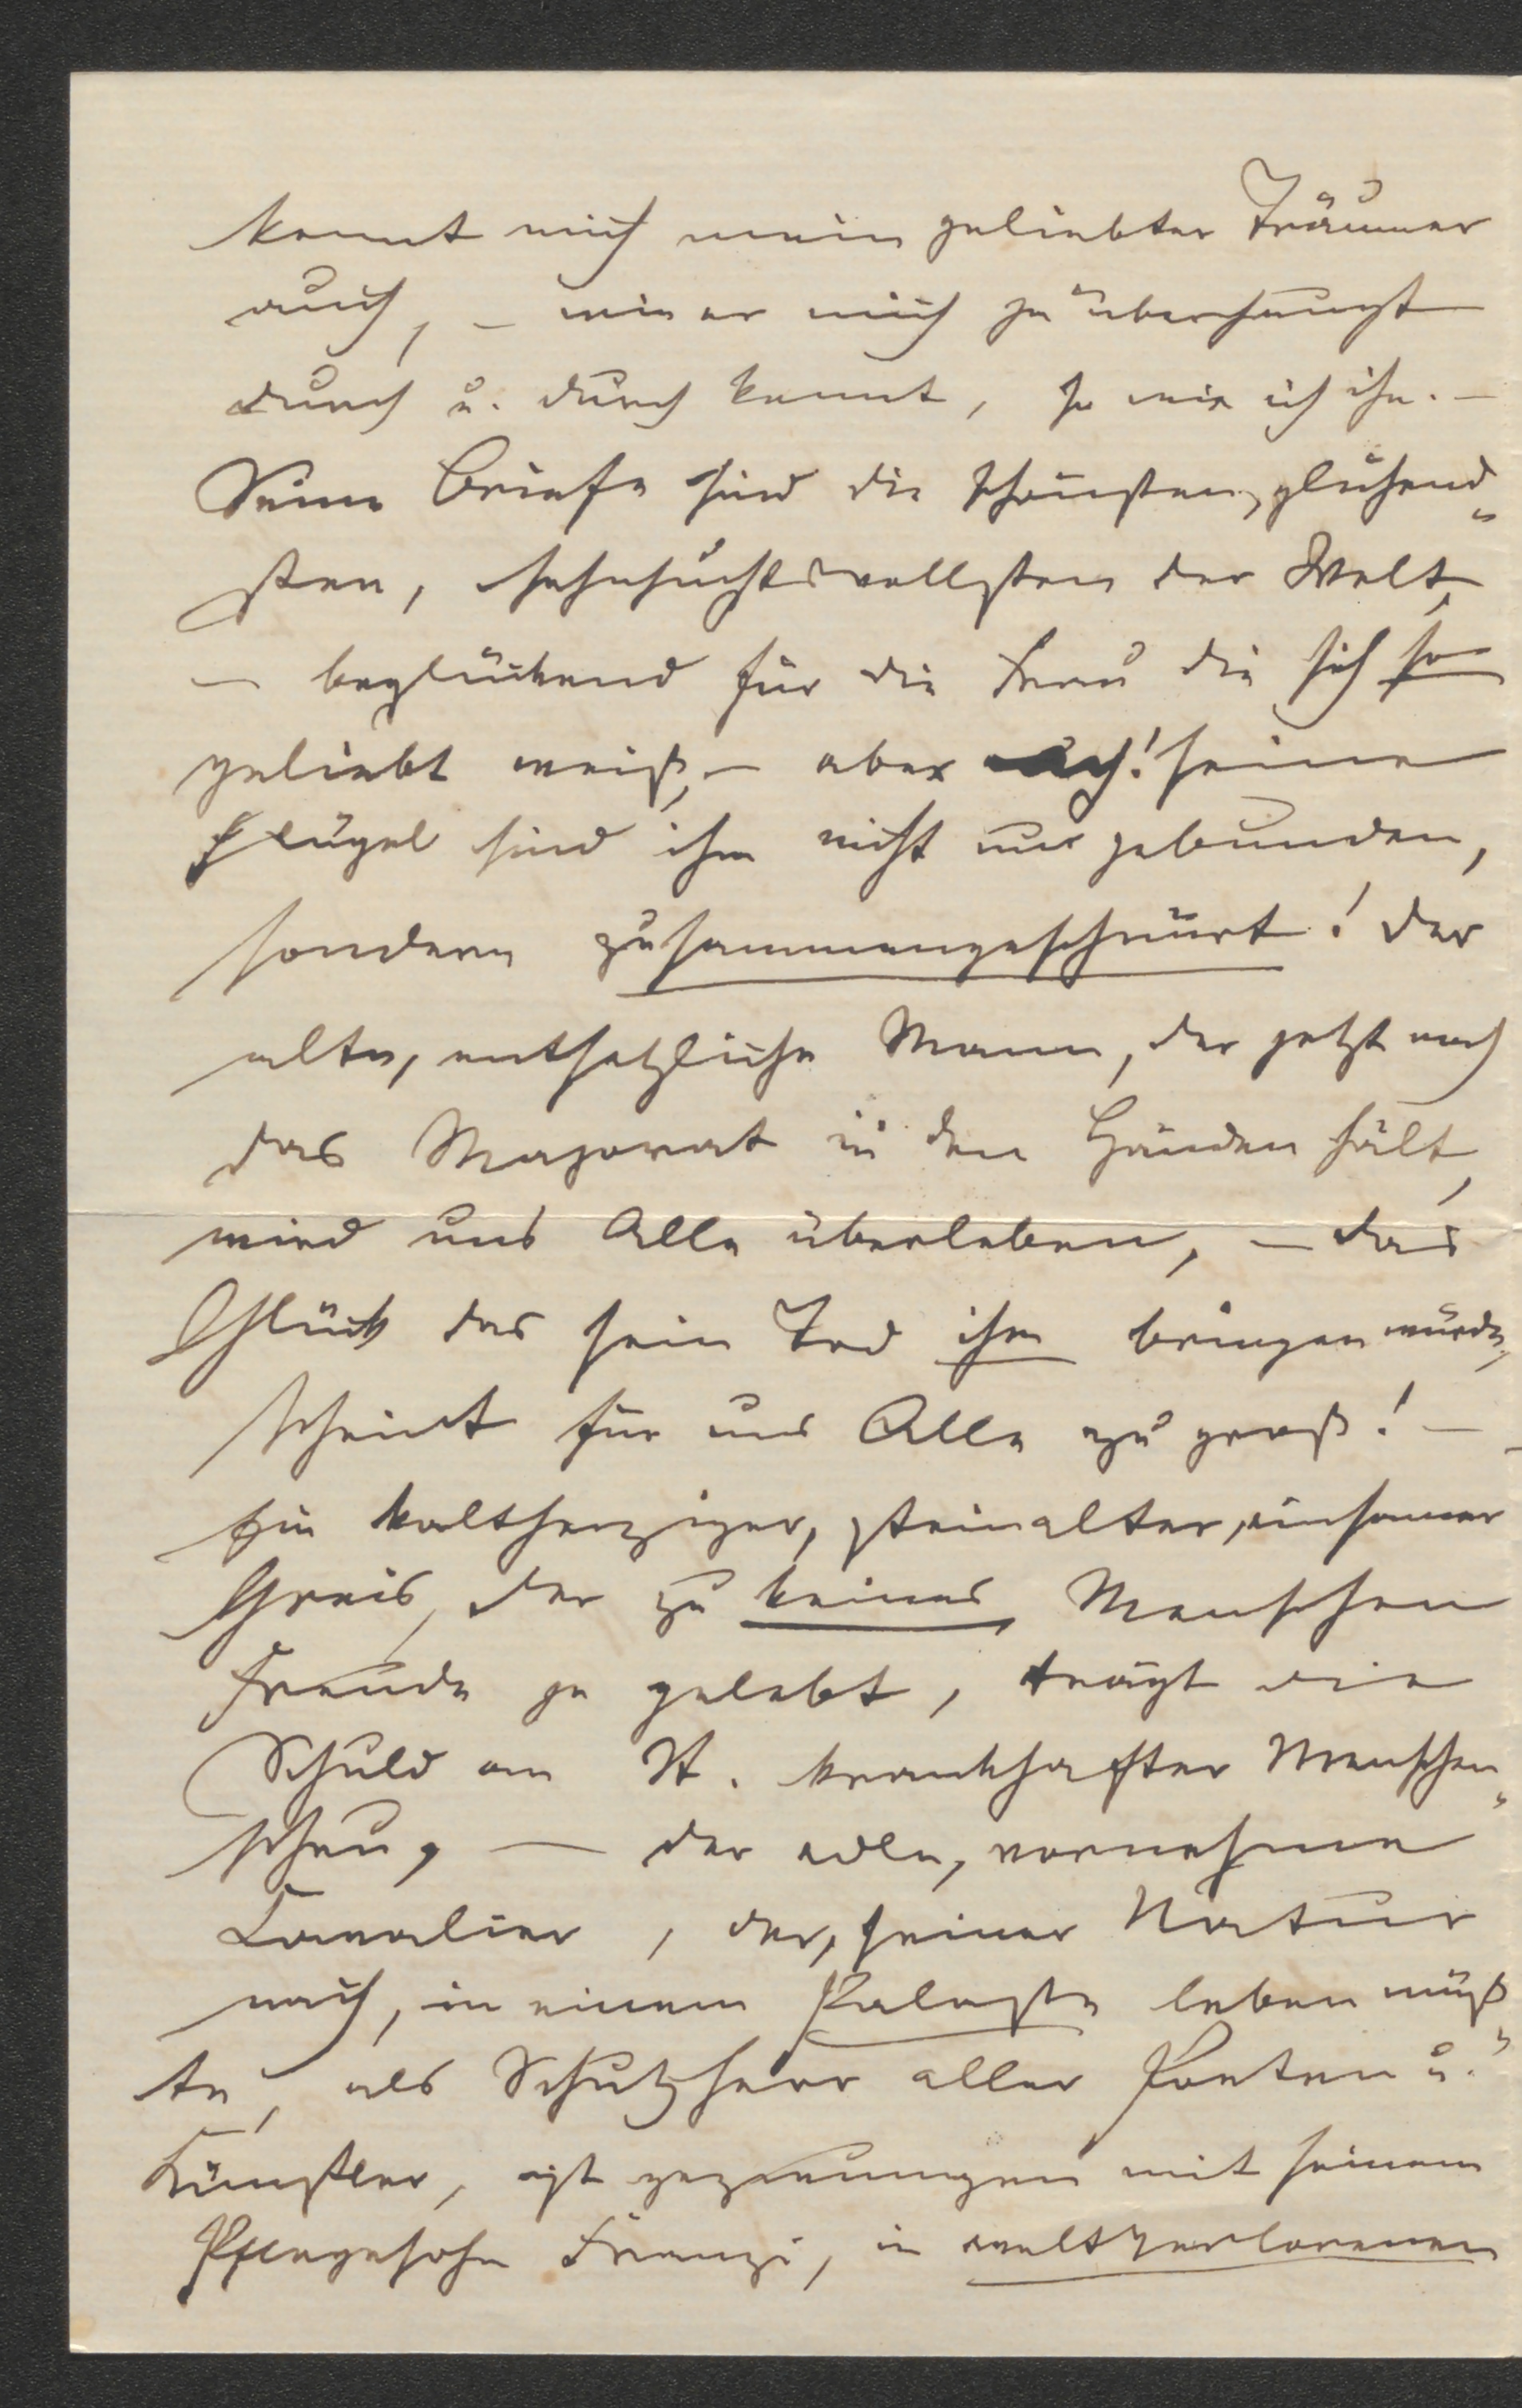 kennt mich mein geliebter Träumer
auch, – wie er mich ja überhaupt
durch u. durch kennt, so wie ich ihn. –
Seine Briefe sind die schönsten, glühend„
sten, sehnsuchtsvollsten der Welt,
– beglückend für die Frau die sich so
geliebt weiß, – aber ach! seine
Flügel sind ihm nicht nur gebunden,
sondern zusammengeschnürt! Der
alte, entsetzliche Mann, der jetzt noch
das Majorat in den Händen hält,
wird uns Alle überleben, – das
Glück das sein Tod ihm bringen würde,
scheint für uns Alle zu groß! –
Ein kaltherziger, steinalter, einsamer
Greis, der zu keines Menschen
Freude je gelebt, trägt die
Schuld an St. krankhafter Menschen„
scheu, – der edle, vornehme
Cavalier, der, seiner Natur
nach, in einem Palaste leben müß„
te, als Schutzherr aller Poeten u.
Künstler, ist gezwungen mit seinem
Pflegesohn Franzi, in weltverlorenen